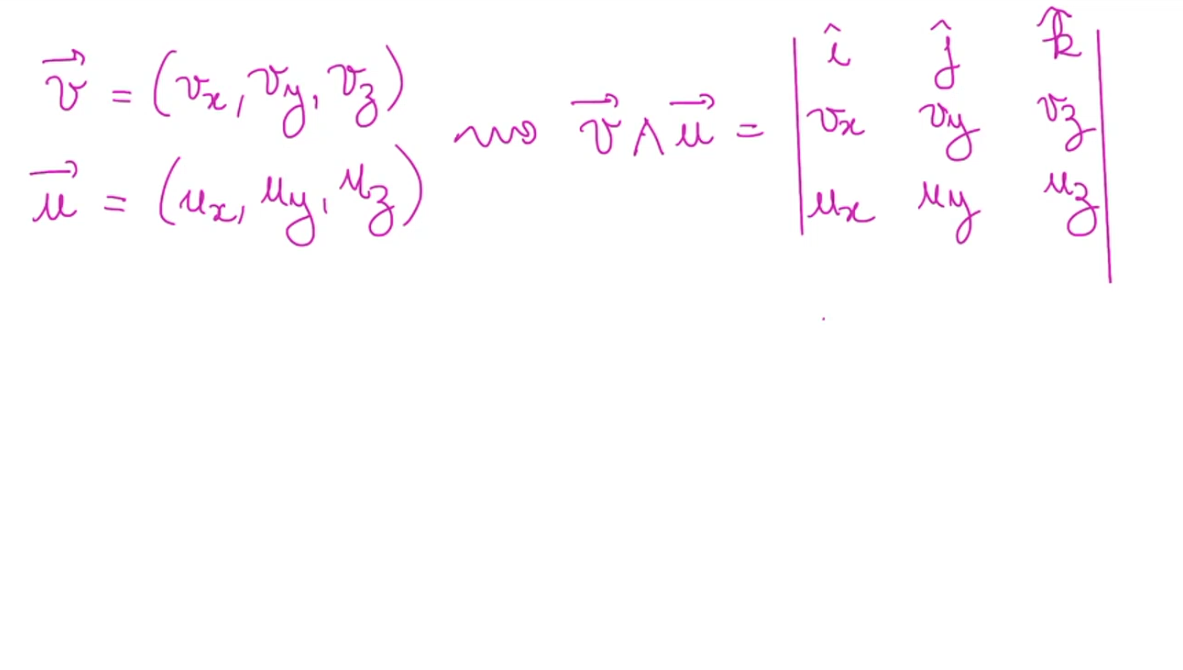 v⃗ = (vx, vy, vz)
u⃗ = (ux, uy, uz)
⇝ v⃗ ∧ u⃗ =
| î ĵ k̂ |
| vx vy vz |
| ux uy uz |